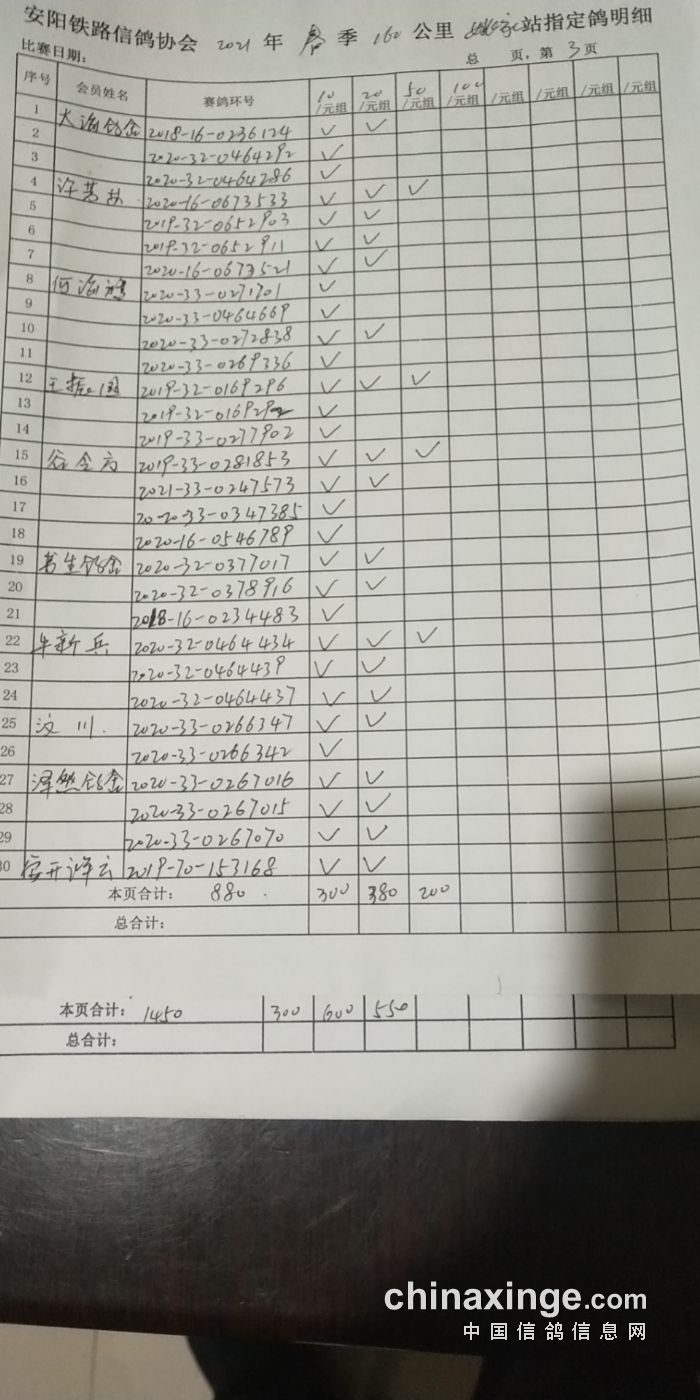 安阳铁路信鸽协会 2021 年 春 季 160 公里 站指定鸽明细
比赛日期: 总 页,第 3 页
序号 会员姓名 赛鸽环号 10/元组 20/元组 50/元组 100/元组 /元组 /元组 /元组 /元组
1 大海鸽舍 2018-16-0236124 ✓ ✓
2 2020-32-0464292 ✓
3 2020-32-0464286 ✓
4 许 2020-16-0673533 ✓ ✓ ✓
5 2019-32-0652903 ✓ ✓
6 2019-32-0652911 ✓ ✓
7 2020-16-0673521 ✓ ✓
8 何海 2020-33-0271701 ✓
9 2020-33-0464669 ✓
10 2020-33-0272838 ✓ ✓
11 2020-33-0269336 ✓
12 王振国 2019-32-0169296 ✓ ✓ ✓
13 2019-32-0169292 ✓
14 2019-33-0277902 ✓
15 谷全方 2019-33-0281853 ✓ ✓ ✓
16 2021-33-0247573 ✓ ✓
17 2020-33-0347385 ✓
18 2020-16-0546789 ✓
19 书生鸽舍 2020-32-0377017 ✓ ✓
20 2020-32-0378916 ✓ ✓
21 2018-16-0234483 ✓
22 牛新兵 2020-32-0464434 ✓ ✓ ✓
23 2020-32-0464439 ✓ ✓
24 2020-32-0464437 ✓ ✓
25 汶川. 2020-33-0266347 ✓ ✓
26 2020-33-0266342 ✓
27 泽然鸽舍 2020-33-0267016 ✓ ✓
28 2020-33-0267015 ✓ ✓
29 2020-33-0267070 ✓ ✓
30 安开泽云 2019-70-153168 ✓ ✓
本页合计: 880. 300 380 200
总合计:
本页合计: 1450 300 600 550
总合计:
chinaxinge.com
中国信鸽信息网